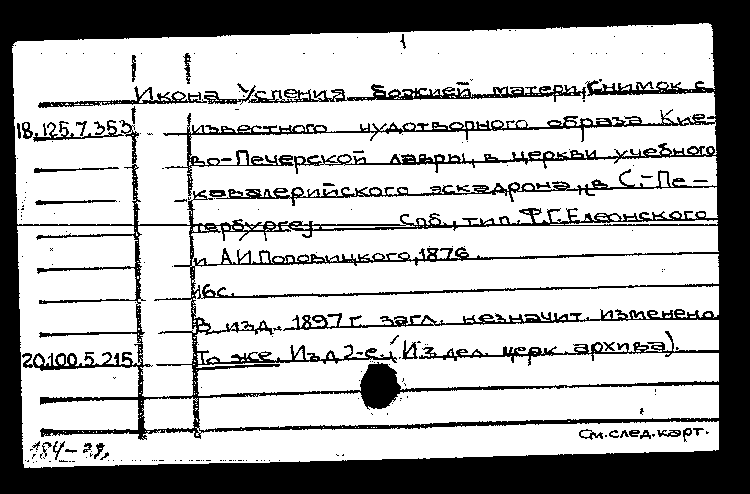 Икона Успения Божией матери, Снимок с
18.125.7.353 известного чудотворного образа Кие-
во-Печерской лавры, в церкви учебного
кавалерийского эскадрона, в С.-Пе-
тербурге]. Спб., тип. Ф.Г.Елеонского
и А.И.Поповицкого, 1876.
16с.
В изд. 1897 г. загл. незначит. изменено
20.100.5.215. То же. Изд 2-е. (Из дел. церк. архива).
См.след.карт.
184-39.